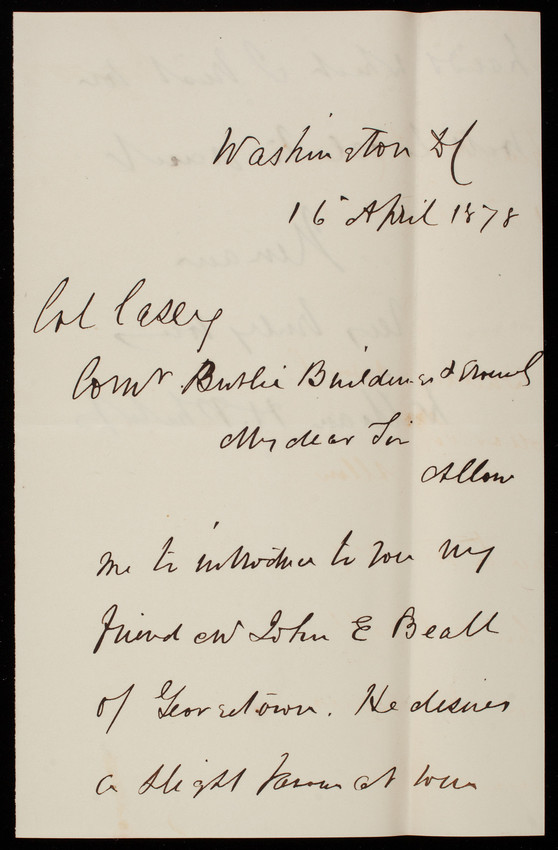 Washington DC
16 April 1878
Col Casey
Comr Public Buildings & Grounds
My dear Sir
Allow
me to introduce to you my
friend Mr John E Beall
of Georgetown. He desires
a slight favor at your